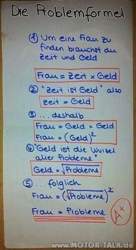 Die Problemformel
① Um eine Frau zu
finden brauchst du
Zeit und Geld
Frau = Zeit x Geld
② "Zeit ist Geld" also
Zeit = Geld
③ ... deshalb
Frau = Geld x Geld
Frau = (Geld)²
④ Geld ist die Wurzel
aller Probleme"
Geld = √Probleme
⑤ ... folglich
Frau = (√Probleme)²
Frau = Probleme
A+
www.MOTOR-TALK.de